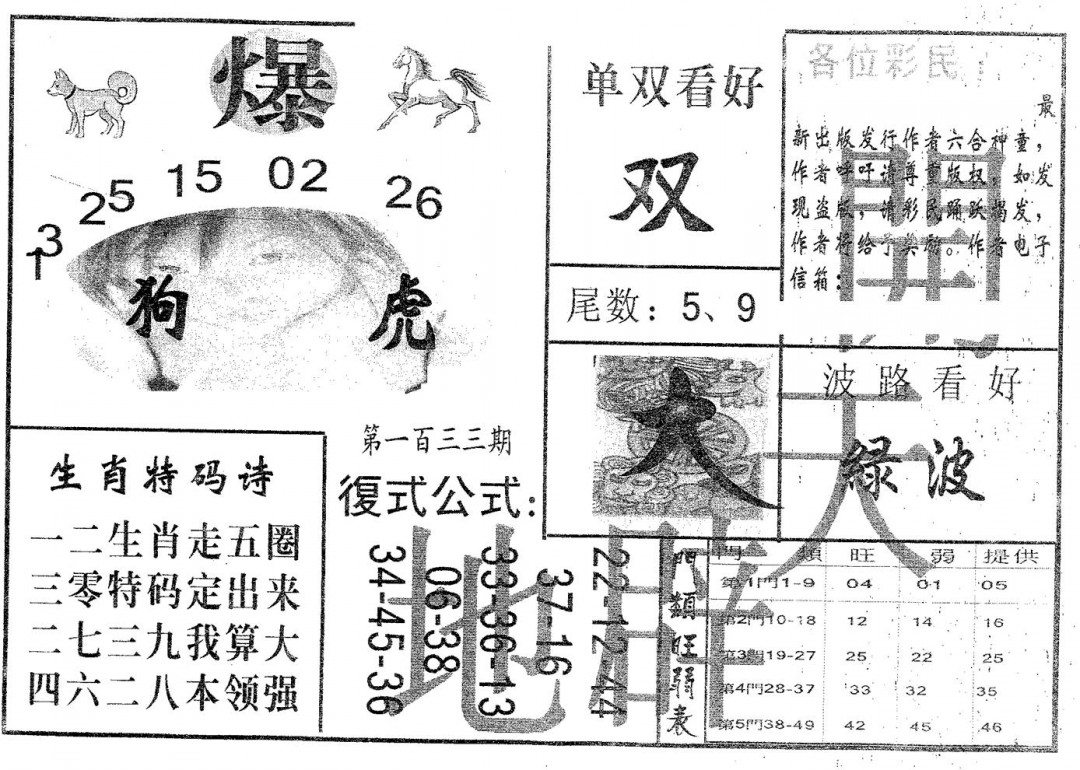 爆
13
25
15
02
26
狗
虎
生肖特码诗
一二生肖走五圈
三零特码定出来
二七三九我算大
四六二八本领强
第一百三三期
復式公式:
34-45-36
06-38
33-36-13
37-16
22-12-44
单双看好
双
尾数: 5、9
大
各位彩民:
最
新出版发行作者六合神童,
作者呼吁请尊重版权,如发
现盗版,请彩民踊跃揭发,
作者将给予奖励。作者电子
信箱:
波路看好
緑波
開天地
門類旺弱表
門 類 旺 弱 提供
第1門1-9 04 01 05
第2門10-18 12 14 16
第3門19-27 25 22 25
第4門28-37 33 32 35
第5門38-49 42 45 46